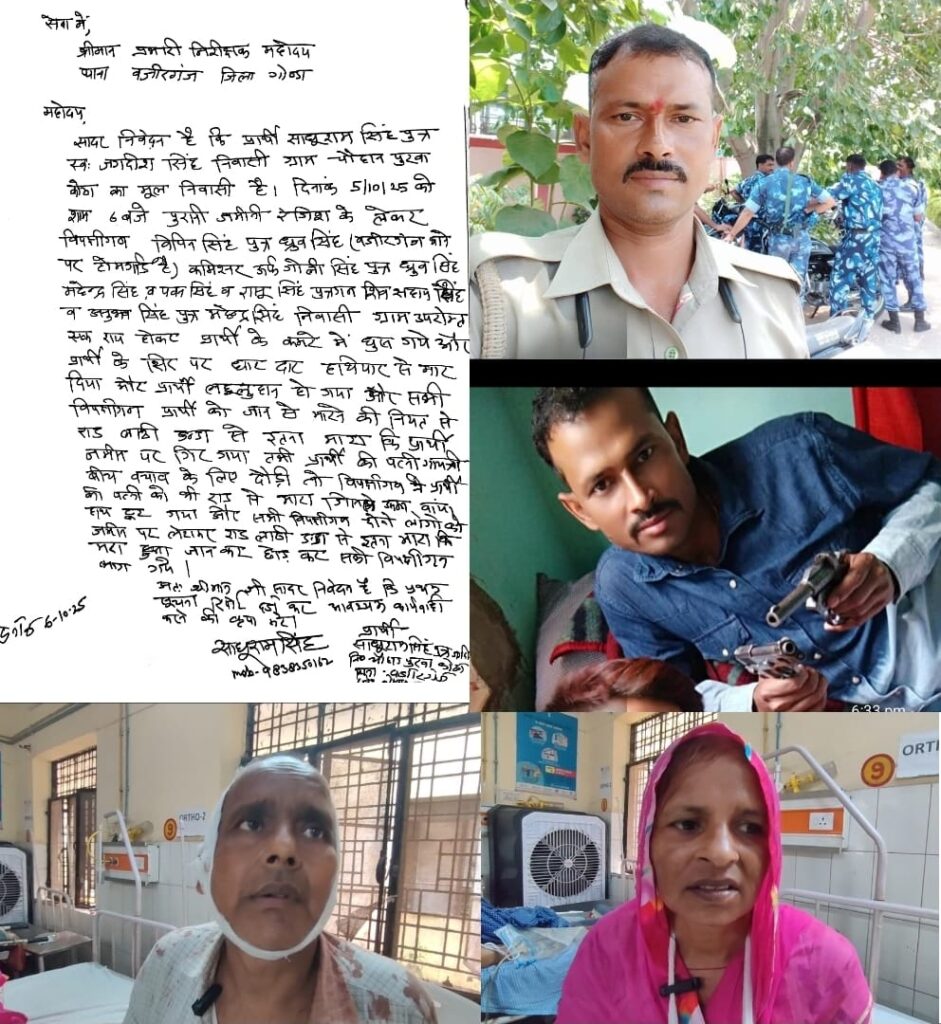 सेवा में,
श्रीमान प्रभारी निरीक्षक महोदय
थाना वजीरगंज जिला गोण्डा
महोदय,
सादर निवेदन है कि प्रार्थी साधूराम सिंह पुत्र
स्व: जगदीश सिंह निवासी ग्राम चौहान पुरवा
का मूल निवासी है। दिनांक 5/10/25 को
शाम 6 बजे पुरानी जमीनी रंजिश के लेकर
विपक्षीगण विपिन सिंह पुत्र ध्रुव सिंह (वजीरगंज थाने
पर होमगार्ड है) कमिश्नर उर्फ जोगी सिंह पुत्र ध्रुव सिंह
महेन्द्र सिंह व पंकज सिंह व राजू सिंह पुत्रगण शिव सहाय सिंह
व अनुभव सिंह पुत्र महेन्द्र सिंह निवासी ग्राम उपरोक्त
एक राय होकर प्रार्थी के कमरे में घुस गये और
प्रार्थी के सिर पर धार दार हथियार से मार
दिया और प्रार्थी लहूलुहान हो गया और सभी
विपक्षीगण प्रार्थी को जान से मारने की नियत से
राड लाठी डन्डा से इतना मारा कि प्रार्थी
जमीन पर गिर गया तभी प्रार्थी की पत्नी गायत्री
बीच बचाव के लिए दौड़ी तो विपक्षीगण ने प्रार्थी
की पत्नी को भी राड से मारा जिससे उनका बांया
हाथ टूट गया और सभी विपक्षीगण दोनों लोगों को
जमीन पर लेटाकर राड लाठी डन्डा से इतना मारा कि
मरा हुआ जान कर छोड़ कर सभी विपक्षीगण
भाग गये।
अतः श्रीमान जी सादर निवेदन है कि प्रथम
सूचना रिपोर्ट दर्ज कर आवश्यक कार्यवाही
करने की कृपा करें।
दिनांक 6-10-25
साधूराम सिंह
mob-9838255162
प्रार्थी
साधूराम सिंह पुत्र
6:33 pm
9
ORTHO-2
9
ORTH